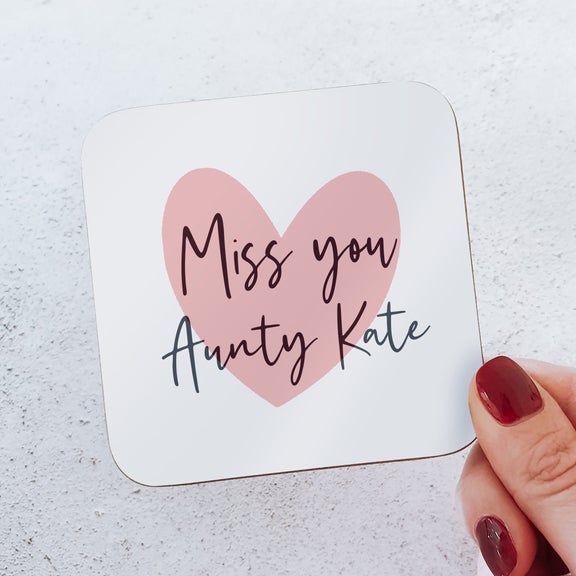 Miss you
Aunty Kate